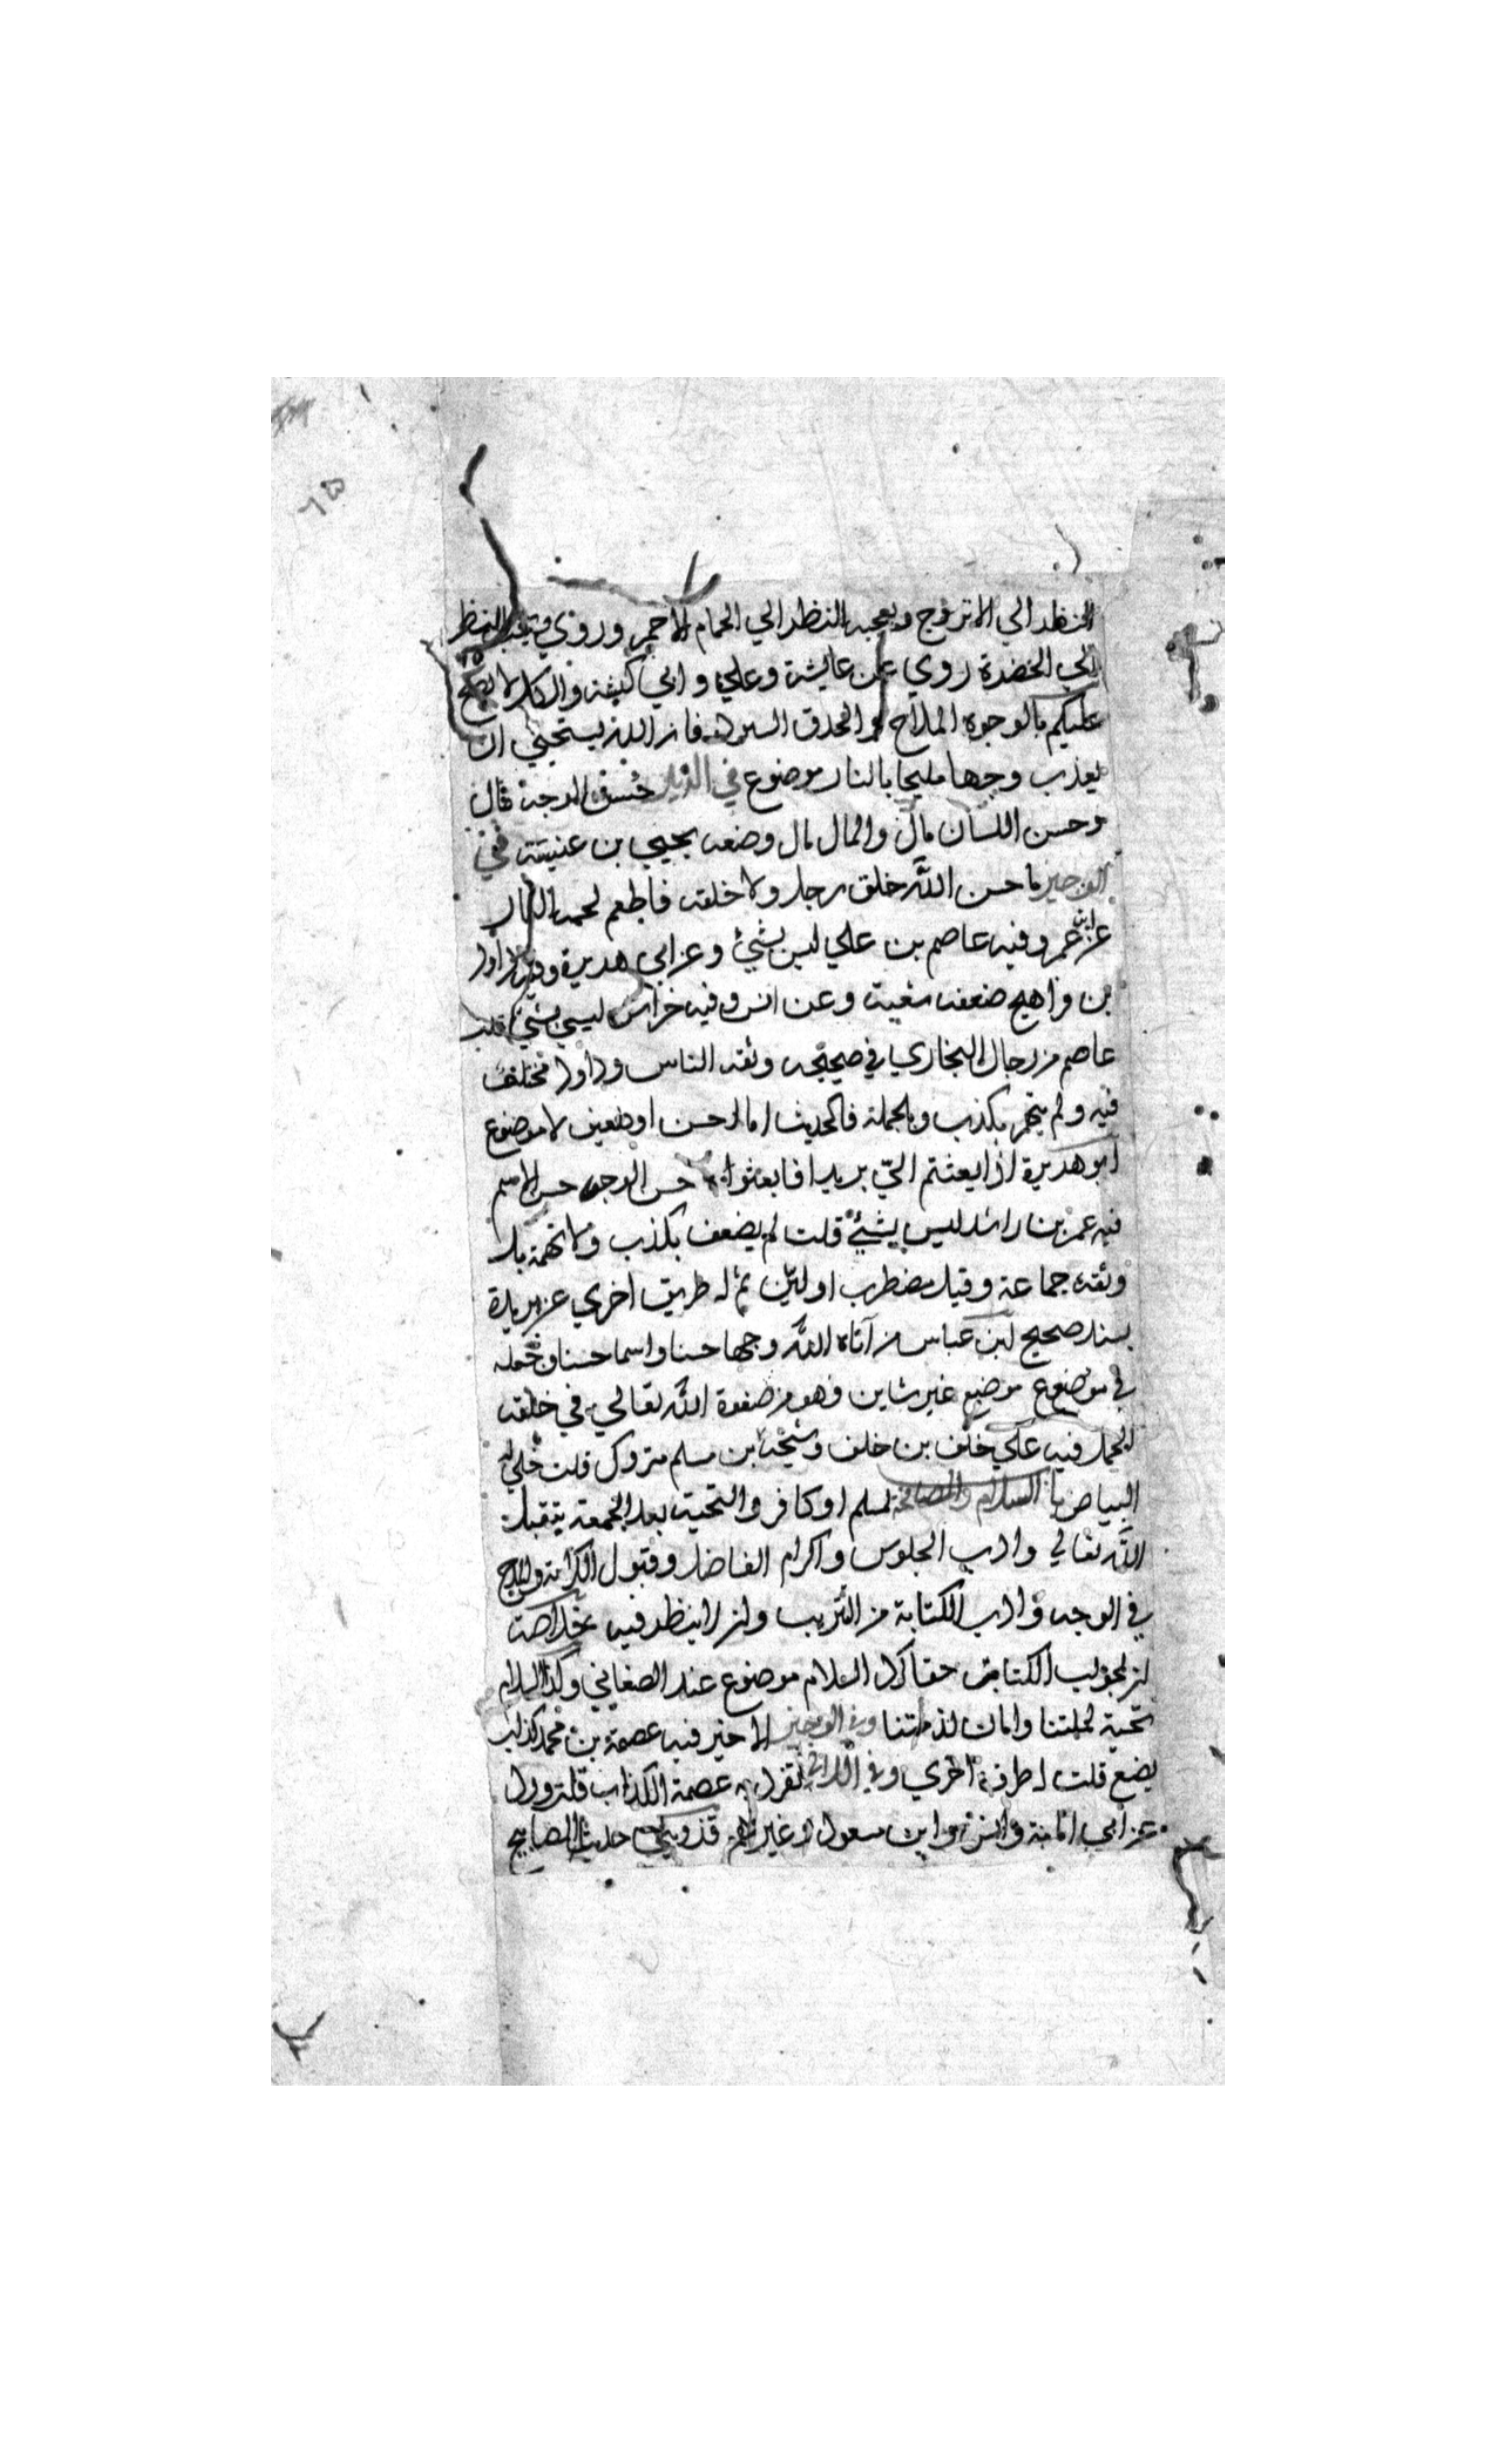 النظر الي الاتروج ويعجبه النظر الي الحمام الاحمر وروي ويعجبه النظر
الي الخضرة روي عن عايشة وعلي وابي كبشة والكل لا يصح
عليكم بالوجوه الملاح والحدق السود فان الله يستحيي ان
يعذب وجها مليحا بالنار موضوع في الذيل حسن الوجه مال
وحسن اللسان مال والمال مال وضعه يحيي بن عنبسة في
الوجيز ما حسن الله خلق رجل ولا خلقه فاطعم لحمه النار
عن ابن عمر وفيه عاصم بن علي ليس بشئ وعن ابي هريرة وفيه داود
بن فراهيج ضعفه شعبة وعن انس وفيه خراش ليس بشئ قلت
عاصم من رجال البخاري في صحيحه وثقه الناس وداود مختلف
فيه ولم يتهم بكذب وبالجملة فالحديث اما حسن او ضعيف لا موضوع
ابو هريرة اذا بعثتم الي بريدا فابعثوا حسن الوجه حسن الاسم
فيه عمر بن راشد ليس بشئ قلت لم يضعف بكذب ولا تهمة بل
وثقه جماعة وقيل مضطرب او لين ثم له طريق اخري عن بريدة
بسند صحيح ابن عباس من آتاه الله وجها حسنا واسما حسنا وجعله
في موضوع موضع غير شاين فهو من صفوة الله تعالي في خلقه
فيه علي خلف بن خلف وشيخه بن مسلم متروك قلت خلي له
البياض با السلام والمصافحة لمسلم او كافر والتحية بعد الجمعة بتقبل
الله تعالي وادب الجلوس واكرام الفاضل وقبول الكرامة والمدح
في الوجه وادب الكتابة من التتريب وان لا ينظر فيه
ان لجواب الكتاب حقا كرد السلام موضوع عند الصغاني وكذا السلام
تحية لملتنا وامان لذمتنا وفي الوجيز الاخير فيه عصمة بن محمد كذاب
يضع قلت له طرق اخري وفي اللالي تفرد به عصمة الكذاب قلت ورد
عن ابي امامة وانس وابن مسعود وغيرهم حديث المصابيح